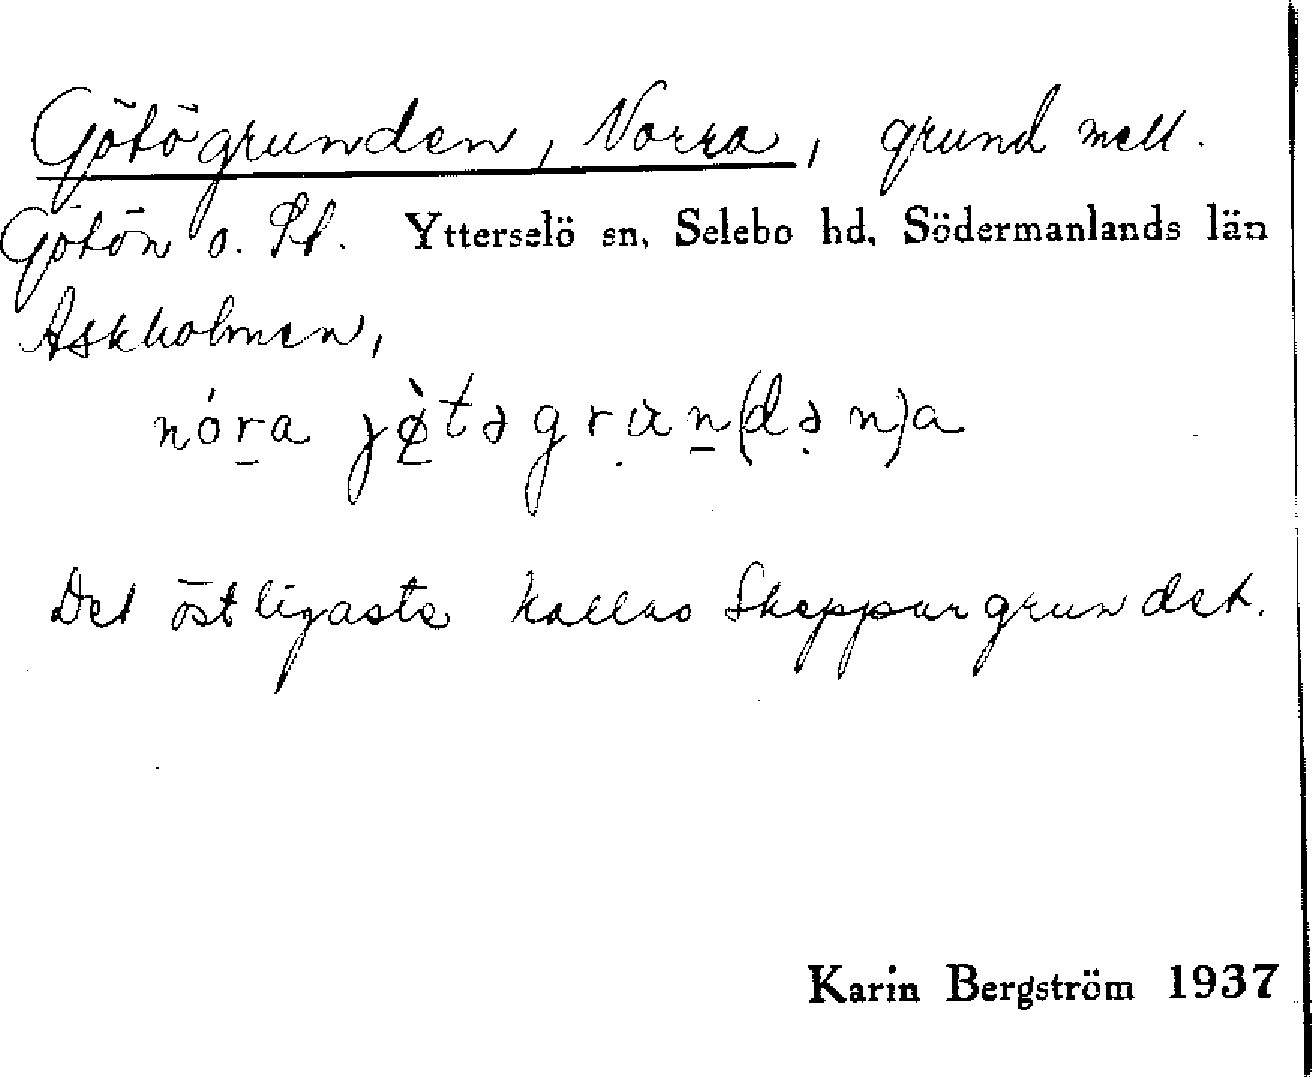 Götögrunden, Norra, grund mell.
Götön o. St. Ytterselö sn, Selebo hd, Södermanlands län
Askholmen,
nóra jø̀təgrun(dən)a
Det östligaste kallas Skeppargrundet.
Karin Bergström 1937